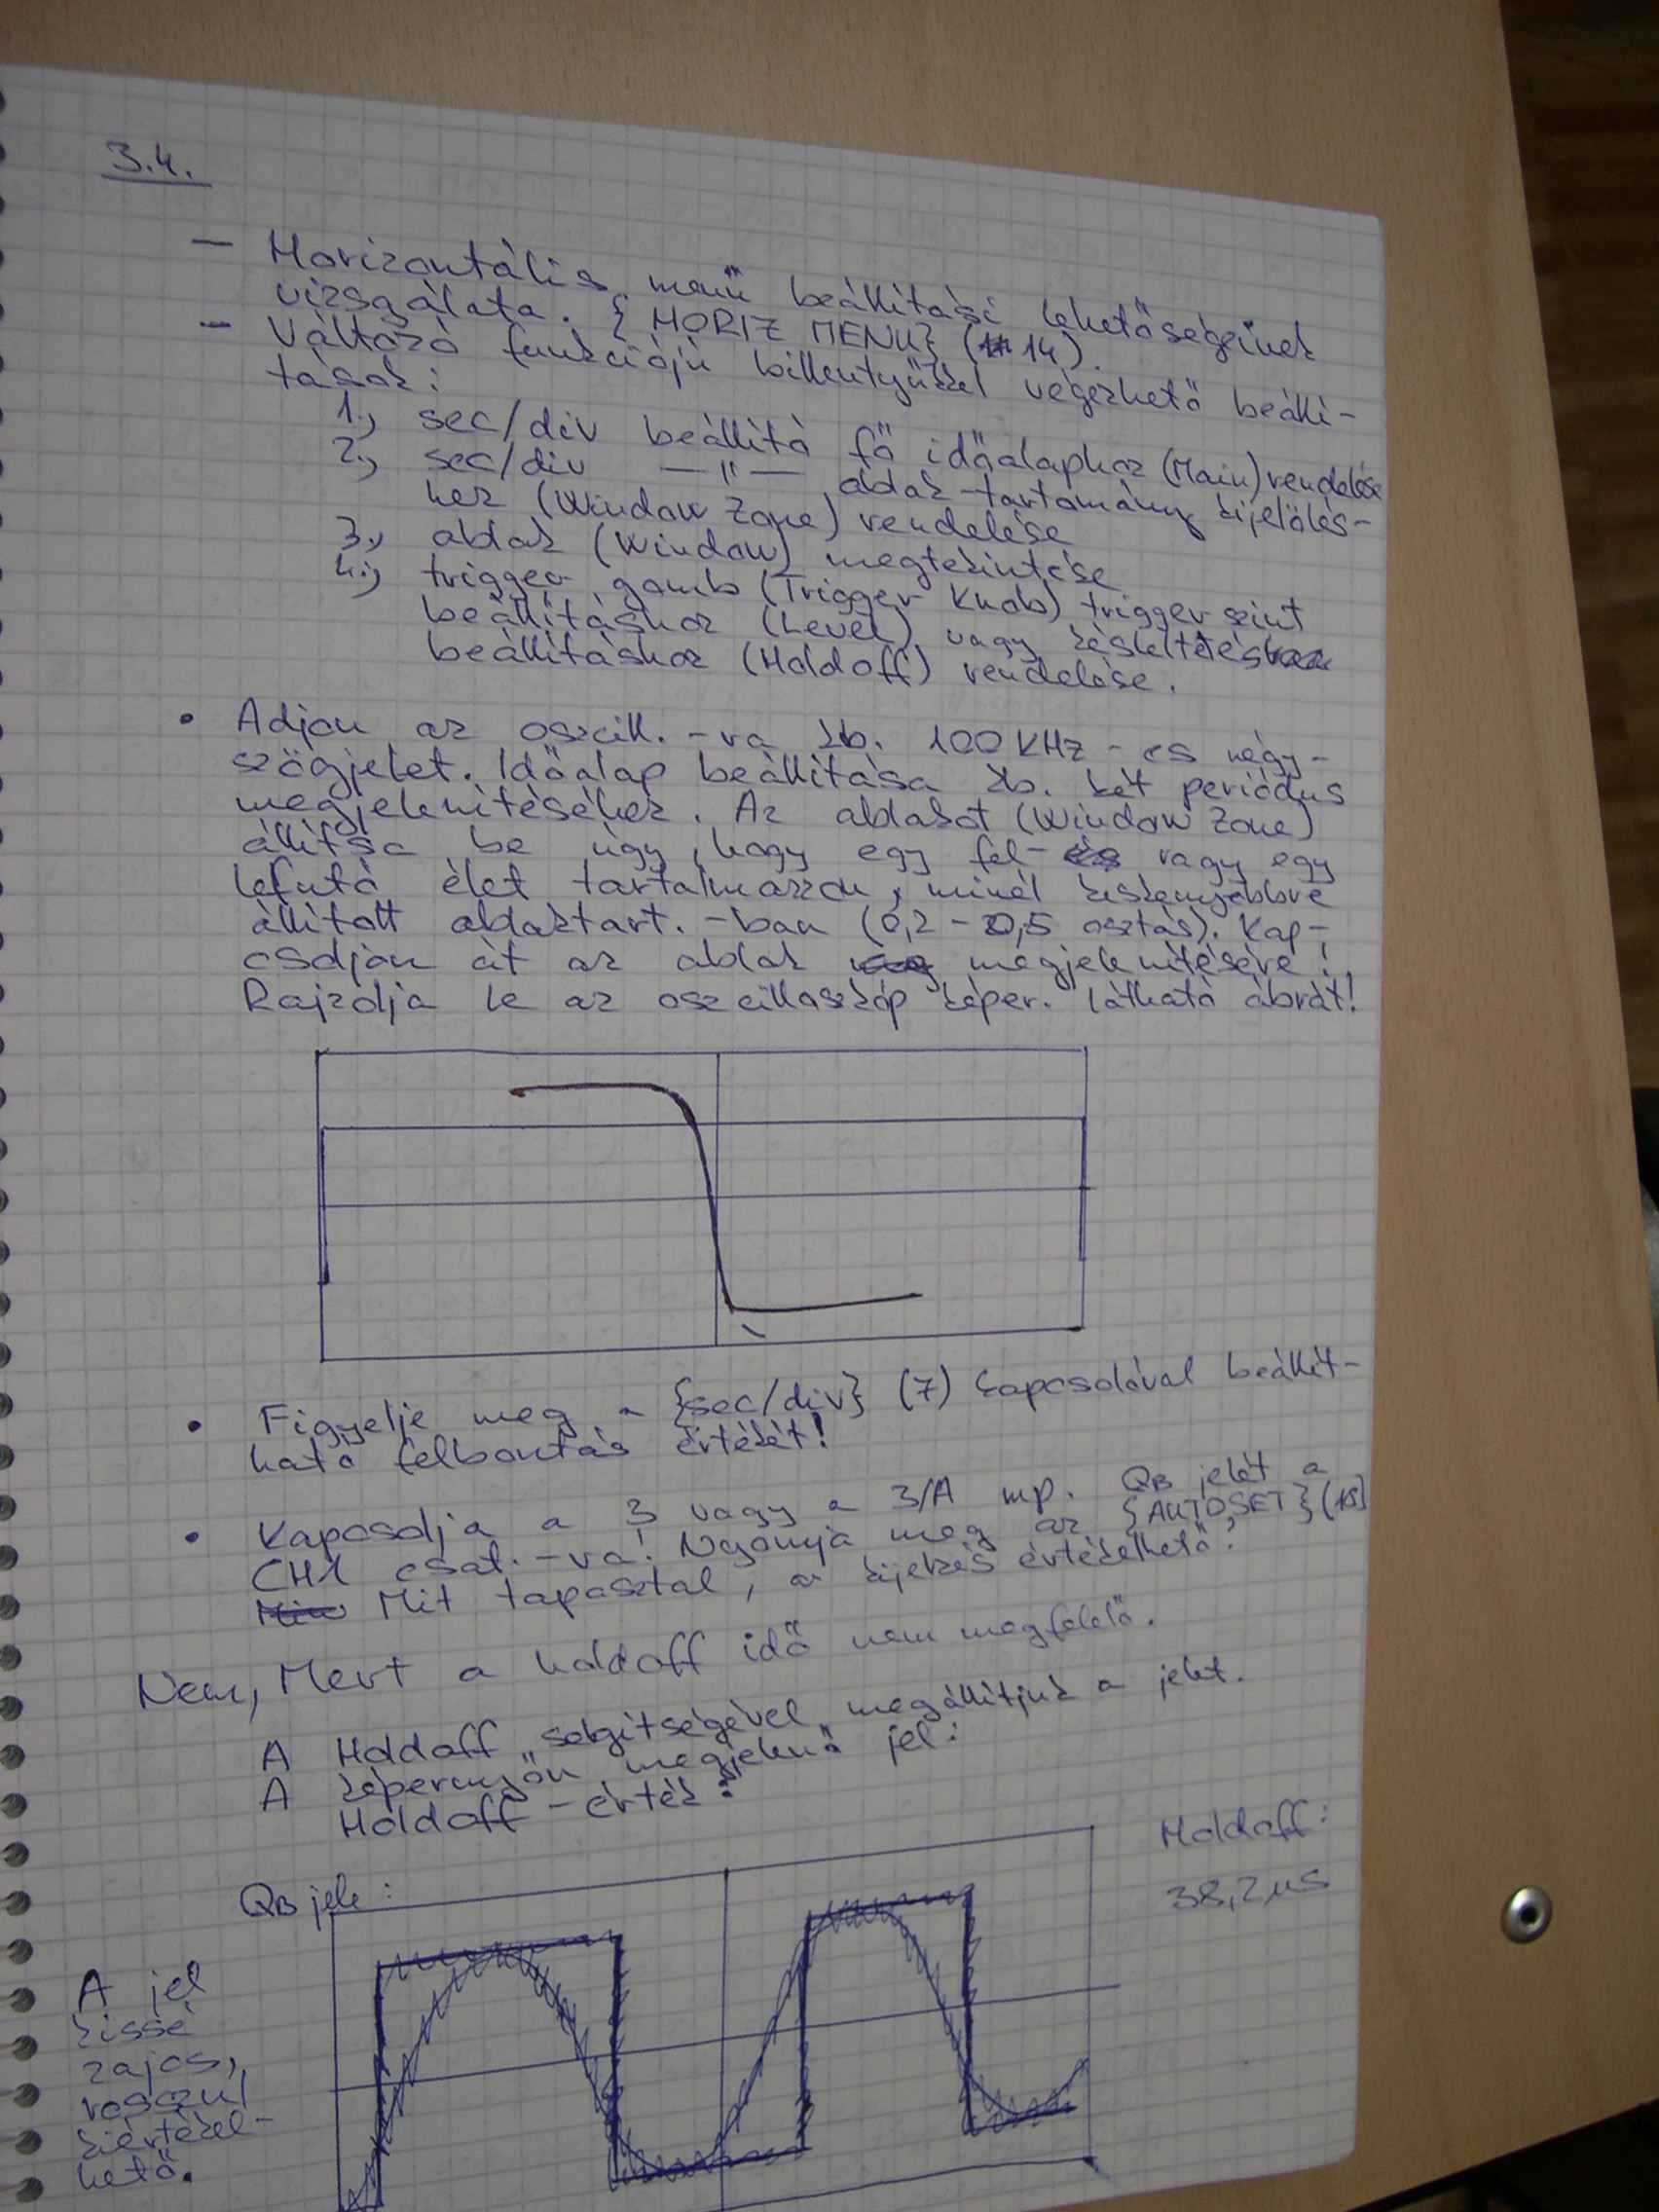 3.4.
— Horizontális menü beállítási lehetőségeinek
vizsgálata. {HORIZ MENU} (14).
— Változó funkciójú billentyűkkel végezhető beállí-
tások:
1., sec/div beállító fő időalaphoz (Main) rendelése
2., sec/div —"— ablak-tartomány kijelölés-
hez (Window Zone) rendelése
3., ablak (Window) megtekintése
4., trigger gomb (Trigger Knob) trigger szint
beállításhoz (Level) vagy késleltetés
beállításhoz (Holdoff) rendelése.
• Adjon az oszcill.-ra kb. 100 KHz-es négy-
szögjelet. Időalap beállítása kb. két periódus
megjelenítéséhez. Az ablakot (Window Zone)
állítsa be úgy, hogy egy fel- vagy egy
lefutó élet tartalmazzon, minél keskenyebbre
állított ablaktart.-ban (0,2-0,5 osztás). Kap-
csoljon át az ablak megjelenítésére!
Rajzolja le az oszcilloszkóp képer. látható ábrát!
• Figyelje meg a {sec/div} (7) kapcsolóval beállít-
ható felbontás értékét!
• Kapcsolja a 3 vagy a 3/A mp. QB jelét a
CH1 csat.-ra! Nyomja meg az {AUTOSET} (15)
Mit tapasztal, a kijelzés értékelhető?
Nem, Mert a holdoff idő nem megfelelő.
A Holdoff segítségével megállítjuk a jelet.
A képernyőn megjelenő jel:
Holdoff-érték:
Holdoff:
38,2 µs
QB jele:
A jel
kissé
zajos,
rosszul
kiértékel-
hető.